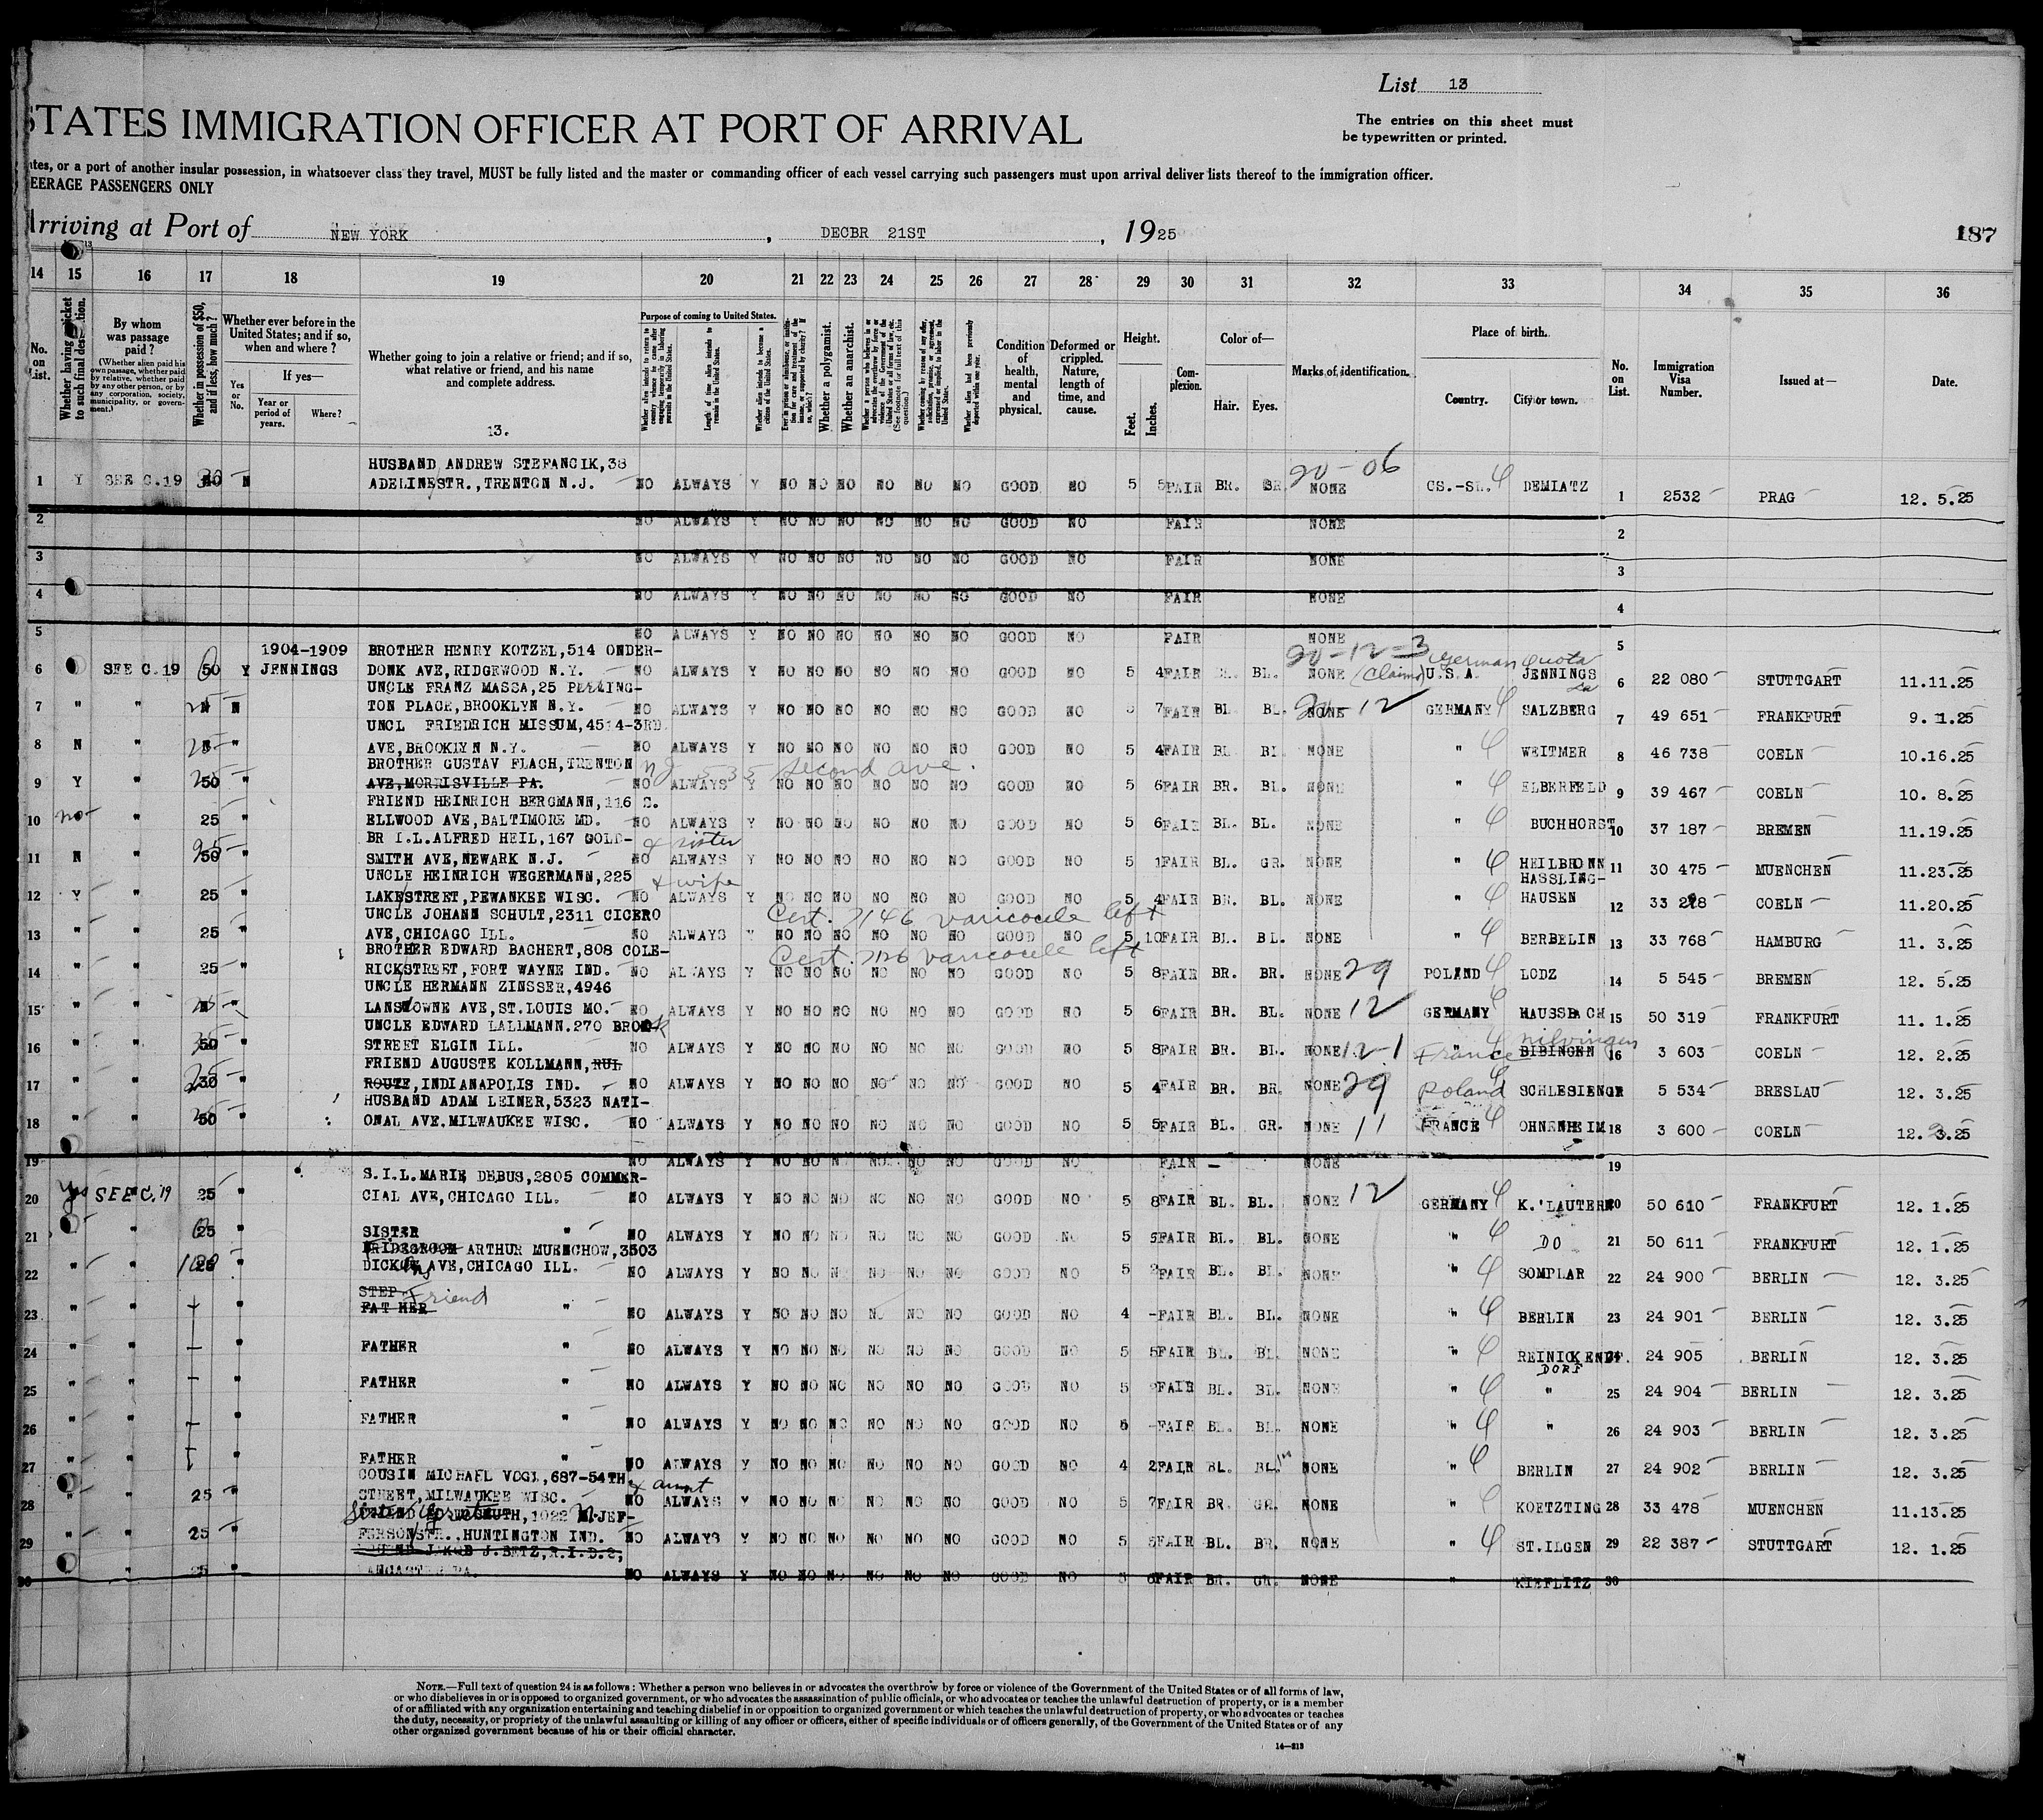 List 13
The entries on this sheet must
be typewritten or printed.
STATES IMMIGRATION OFFICER AT PORT OF ARRIVAL
ates, or a port of another insular possession, in whatsoever class they travel, MUST be fully listed and the master or commanding officer of each vessel carrying such passengers must upon arrival deliver lists thereof to the immigration officer.
EERAGE PASSENGERS ONLY
Arriving at Port of NEW YORK, DECBR 21ST, 1925
187
14 15 16 17 18 19 20 21 22 23 24 25 26 27 28 29 30 31 32 33 34 35 36
No. on List.
Whether having ticket to such final destination.
By whom was passage paid?
(Whether alien paid his own passage, whether paid by relative, whether paid by any other person, or by any corporation, society, municipality, or government.)
Whether in possession of $50, and if less, how much?
Whether ever before in the United States; and if so, when and where?
Yes or No.
If yes—
Year or period of years.
Where?
Whether going to join a relative or friend; and if so, what relative or friend, and his name and complete address.
13.
Purpose of coming to United States.
Whether a polygamist.
Whether an anarchist.
Condition of health, mental and physical.
Deformed or crippled. Nature, length of time, and cause.
Height.
Feet. Inches.
Complexion.
Color of—
Hair. Eyes.
Marks of identification.
Place of birth.
Country. City or town.
No. on List.
Immigration Visa Number.
Issued at—
Date.
HUSBAND ANDREW STEFANCIK, 38 20-06
1 Y SEE C.19 N ADELINESTR., TRENTON N.J. NO ALWAYS Y NO NO NO NO NO NO GOOD NO 5 5 FAIR BR. BR. NONE CS.-SL. DEMIATZ 1 2532 PRAG 12. 5.25
2 NO ALWAYS Y NO NO NO NO NO NO GOOD NO FAIR NONE 2
3 NO ALWAYS Y NO NO NO NO NO NO GOOD NO FAIR NONE 3
4 NO ALWAYS Y NO NO NO NO NO NO GOOD NO FAIR NONE 4
5 NO ALWAYS Y NO NO NO NO NO NO GOOD NO FAIR NONE 5
1904-1909 BROTHER HENRY KOTZEL, 514 ONDER- 20-12-3 German quota
6 SEE C.19 50 Y JENNINGS DONK AVE, RIDGEWOOD N.Y. NO ALWAYS Y NO NO NO NO NO NO GOOD NO 5 4 FAIR BL. NONE (Claims) U.S.A. JENNINGS La 6 22 080 STUTTGART 11.11.25
UNCLE FRANZ MASSA, 25
7 " " N TON PLACE, BROOKLYN N.Y. NO ALWAYS Y NO NO NO NO NO NO GOOD NO 7 FAIR BL BL. NONE 20-12 GERMANY SALZBERG 7 49 651 FRANKFURT 9. 1.25
UNCL FRIEDRICH MISSUM, 4514-3RD
8 N " " AVE, BROOKLYN N.Y. NO ALWAYS Y NO NO NO NO NO NO GOOD NO 5 4 FAIR BL BL NONE " WEITMER 8 46 738 COELN 10.16.25
BROTHER GUSTAV FLACH, TRENTON NJ 535 Second ave.
9 Y " 50 " AVE, MORRISVILLE PA. NO ALWAYS Y NO NO NO NO NO NO GOOD NO 5 6 FAIR BR. BL. NONE " ELBERFELD 9 39 467 COELN 10. 8.25
FRIEND HEINRICH BERGMANN, 116 S.
10 no " 25 " ELLWOOD AVE, BALTIMORE MD. NO ALWAYS Y NO NO NO NO NO NO GOOD NO 5 6 FAIR BL. BL. NONE " BUCHHORST 10 37 187 BREMEN 11.19.25
BR I.L. ALFRED HEIL, 167 GOLD- & sister
11 N " 50 " SMITH AVE, NEWARK N.J. NO ALWAYS Y NO NO NO NO NO NO GOOD NO 5 1 FAIR BL. GR. NONE " HEILBRONN 11 30 475 MUENCHEN 11.23.25
UNCLE HEINRICH WEGERMANN, 225 & wife HASSLING-
12 Y " 25 " LAKESTREET, PEWANKEE WISC. NO ALWAYS Y NO NO NO NO NO NO GOOD NO 5 4 FAIR BR. BL. NONE " HAUSEN 12 33 COELN 11.20.25
UNCLE JOHANN SCHULT, 2311 CICERO Cert. 7146 varicocele left
13 " " 25 " AVE, CHICAGO ILL. NO ALWAYS Y NO NO NO NO NO NO GOOD NO 5 10 FAIR BL. BL. NONE " BERBELIN 13 33 768 HAMBURG 11. 3.25
BROTHER EDWARD BACHERT, 808 COLE- Cert. varicocele left
14 " " 25 " RICKSTREET, FORT WAYNE IND. NO ALWAYS Y NO NO NO NO NO NO GOOD NO 5 8 FAIR BR. BR. NONE 29 POLAND LODZ 14 5 545 BREMEN 12. 5.25
UNCLE HERMANN ZINSSER, 4946
15 " " " LANSDOWNE AVE, ST. LOUIS MO. NO ALWAYS Y NO NO NO NO NO NO GOOD NO 5 6 FAIR BR. BL. NONE 12 GERMANY HAUSSBACH 15 50 319 FRANKFURT 11. 1.25
UNCLE EDWARD LALLMANN. 270 BROOK nilvingen
16 " " 50 " STREET ELGIN ILL. NO ALWAYS Y NO NO NO NO NO NO GOOD NO 5 8 FAIR BR. BL. NONE 12-1 France BIBINGEN 16 3 603 COELN 12. 2.25
FRIEND AUGUSTE KOLLMANN, RUL
17 " " 25 " ROUTE, INDIANAPOLIS IND. NO ALWAYS Y NO NO NO NO NO NO GOOD NO 5 4 FAIR BR. BR. NONE 29 Poland SCHLESIENGR 5 534 BRESLAU 12. 3.25
HUSBAND ADAM LEINER, 5323 NATI-
18 " " 50 " ONAL AVE. MILWAUKEE WISC. NO ALWAYS Y NO NO NO NO NO NO GOOD NO 5 5 FAIR BL. GR. NONE 11 FRANCE OHNENHEIM 18 3 600 COELN 12. 3.25
19 NO ALWAYS Y NO NO NO NO NO NO GOOD NO FAIR NONE 19
S.I.L. MARIE DEBUS, 2805 COMMER-
20 Yes SEE C.19 25 " CIAL AVE, CHICAGO ILL. NO ALWAYS Y NO NO NO NO NO NO GOOD NO 5 8 FAIR BL. BL. NONE 12 GERMANY K.'LAUTERN 20 50 610 FRANKFURT 12. 1.25
21 " " 25 " SISTER " NO ALWAYS Y NO NO NO NO NO NO GOOD NO 5 5 FAIR BL. BL. NONE " DO 21 50 611 FRANKFURT 12. 1.25
BRIDEGROOM ARTHUR MUENCHOW, 3503
22 " " " DICKENS AVE, CHICAGO ILL. NO ALWAYS Y NO NO NO NO NO NO GOOD NO 5 2 FAIR BL. BL. NONE " SOMPLAR 22 24 900 BERLIN 12. 3.25
STEP- Friend
23 " " " FATHER " NO ALWAYS Y NO NO NO NO NO NO GOOD NO 4 - FAIR BL. BL. NONE " BERLIN 23 24 901 BERLIN 12. 3.25
24 " " " FATHER " NO ALWAYS Y NO NO NO NO NO NO GOOD NO 5 5 FAIR BL. BL. NONE " REINICKENDF. DORF 24 905 BERLIN 12. 3.25
25 " " " FATHER " NO ALWAYS Y NO NO NO NO NO NO GOOD NO 5 FAIR BL. BL. NONE " " 25 24 904 BERLIN 12. 3.25
26 " " " FATHER " NO ALWAYS Y NO NO NO NO NO NO GOOD NO 5 - FAIR BL. BL. NONE " " 26 24 903 BERLIN 12. 3.25
27 " " " FATHER " NO ALWAYS Y NO NO NO NO NO NO GOOD NO 4 2 FAIR BL. BL. NONE " BERLIN 27 24 902 BERLIN 12. 3.25
COUSIN MICHAEL VOGL, 687-54TH & aunt
28 " " 25 " STREET, MILWAUKEE WISC. NO ALWAYS Y NO NO NO NO NO NO GOOD NO 5 7 FAIR BR. GR. NONE " KOETZTING 28 33 478 MUENCHEN 11.13.25
1022 N. JEF-
29 " " 25 " FERSONSTR., HUNTINGTON IND. NO ALWAYS Y NO NO NO NO NO NO GOOD NO 5 5 FAIR BL. BR. NONE " ST. ILGEN 29 22 387 STUTTGART 12. 1.25
JAKOB J. BETZ, R.I.D.8,
30 " 25 " LANCASTER PA. NO ALWAYS Y NO NO NO NO NO NO GOOD NO 5 6 FAIR BR. GR. NONE " KIEFLITZ 30
NOTE.—Full text of question 24 is as follows: Whether a person who believes in or advocates the overthrow by force or violence of the Government of the United States or of all forms of law,
or who disbelieves in or is opposed to organized government, or who advocates the assassination of public officials, or who advocates or teaches the unlawful destruction of property, or is a member
of or affiliated with any organization entertaining and teaching disbelief in or opposition to organized government or which teaches the unlawful destruction of property, or who advocates or teaches
the duty, necessity, or propriety of the unlawful assaulting or killing of any officer or officers, either of specific individuals or of officers generally, of the Government of the United States or of any
other organized government because of his or their official character.
14—213